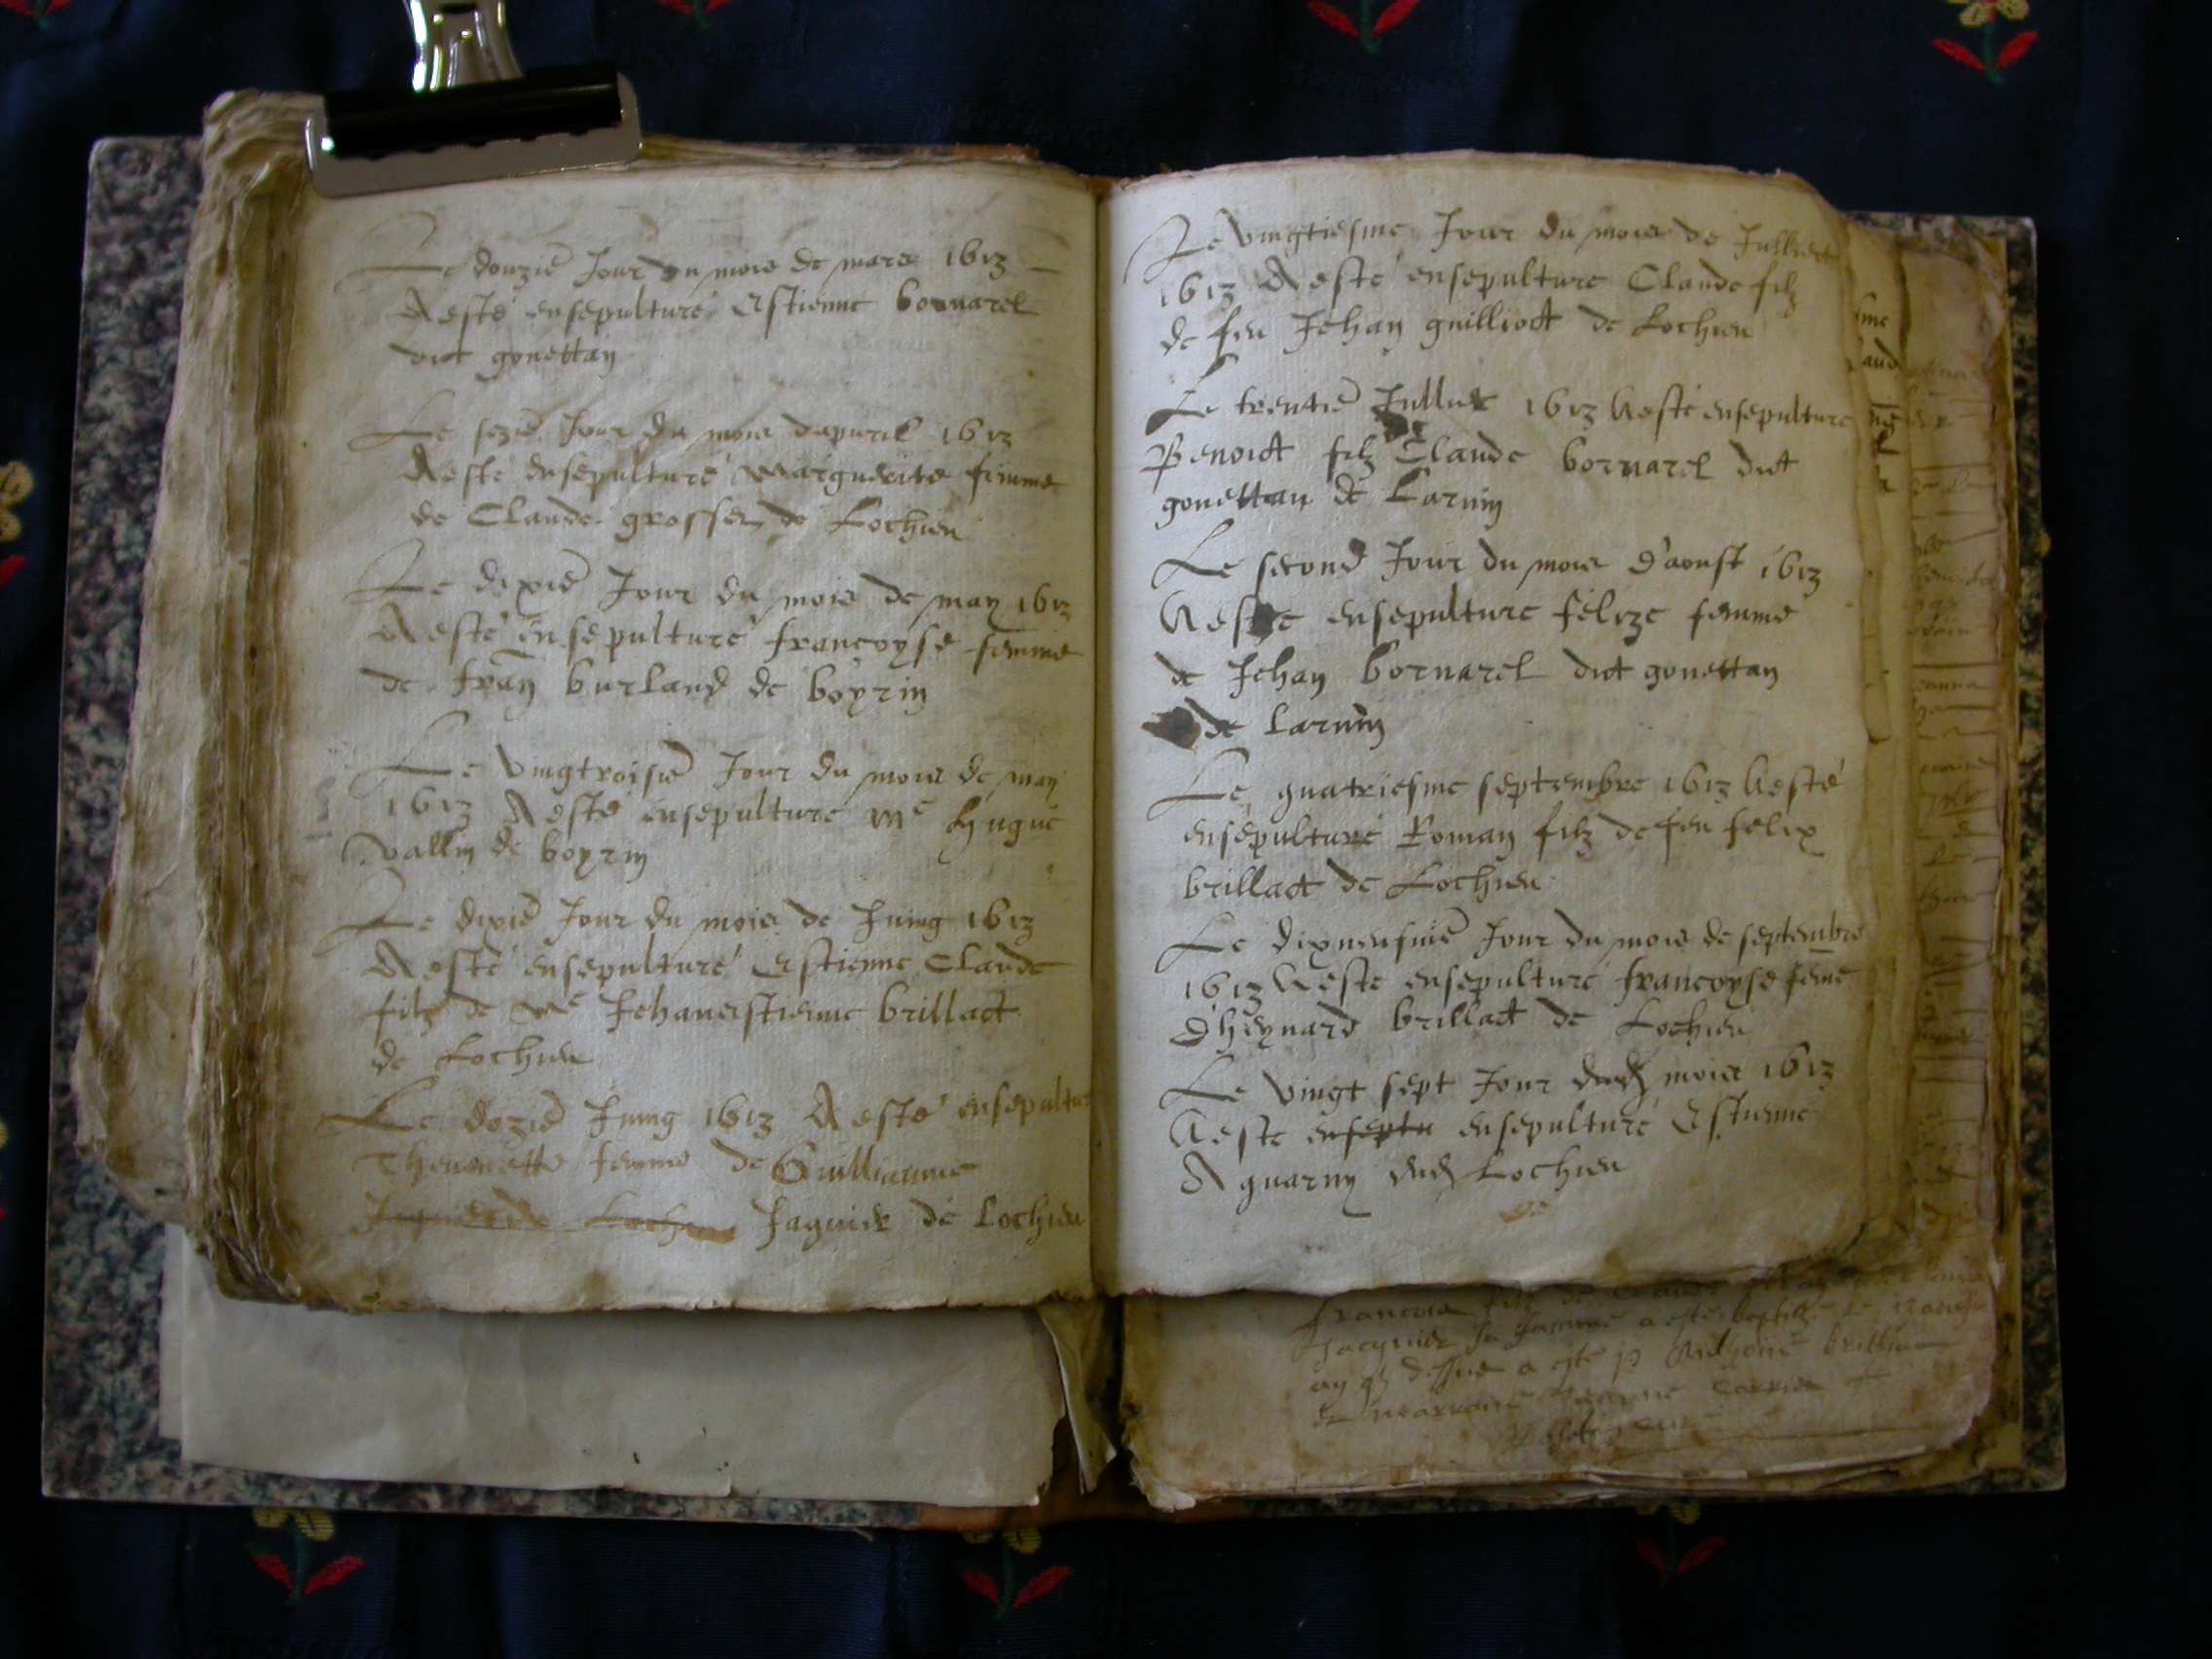 Le douziē Jour du mois de mars 1613
A esté ensepulturé Estienne bornarel
dict gonettan
Le seziē Jour du mois dapuril 1613
A esté ensepulturé Marguerite femme
de Claude grosset de Lochieu
Le dixiē Jour du mois de may 1613
A esté ensepulturé francoyse femme
de fran burland de boyrin
Le vingtroisiē Jour du mois de may
1613 A esté ensepulturé mᵉ Hugue
vallin de boyrin
Le dixiē Jour du mois de Juing 1613
A esté ensepulturé Estienne Claude
filz de mᵉ Jehanestienne brillact
de Lochieu
Le doziē Juing 1613 A esté ensepultur
Thevenette femme de Guilliaume
Jaquier de Lochieu
Le vingtiesme Jour du mois de Julliet
1613 A esté ensepulturé Claude filz
de feu Jehan guilliodt de Lochieu
Le trentiē Julliet 1613 A esté ensepulturé
Benoict filz Claude bornarel dict
gonettan de Larnin
Le second Jour du mois d'aoust 1613
A esté ensepulturé felize femme
de Jehan bornarel dict gonettan
de Larnin
Le quatriesme septembre 1613 A esté
ensepulturé Roman filz de feu felix
brillact de Lochieu
Le dixneufuiē Jour du mois de septembre
1613 A esté ensepulturé francoyse feme
d'heynard brillact de Lochieu
Le vingt sept Jour dud mois 1613
A esté enseptu ensepulturé Estienne
Aguarny dud Lochieu
francois filz de
Jacquier sa famme a esté baptizé le
an q dessus a esté p Anthoine brillia
et marraine